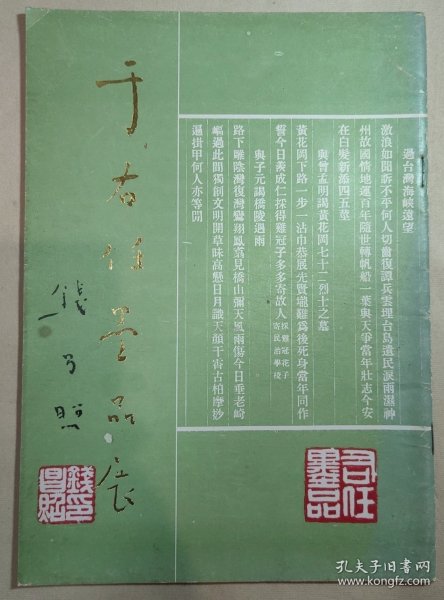 過台灣海峽遠望
激浪如聞訴不平何人切齒復譚兵雲埋台島遺民淚雨濕神
州故國情地運百年隨世轉帆船一葉與天爭當年壯志今安
在白髮新添四五莖
與曾孟明謁黃花岡七十二烈士之墓
黃花岡下路一步一沾巾恭展先賢壠難爲後死身當年同作
誓今日羨成仁採得雞冠子多多寄故人
採雞冠花子
寄民治學校
與子元謁橋陵過雨
路下雎陰灣復灣鸞翔鳳翥見橋山彌天風雨傷今日垂老崎
嶇過此間獨創文明開草昧高懸日月識天顏干霄古柏摩挲
遍掛甲何人亦等閒
右任
墨品
于右任墨品展
錢昌照
錢印
昌照
孔夫子旧书网
www.kongfz.com